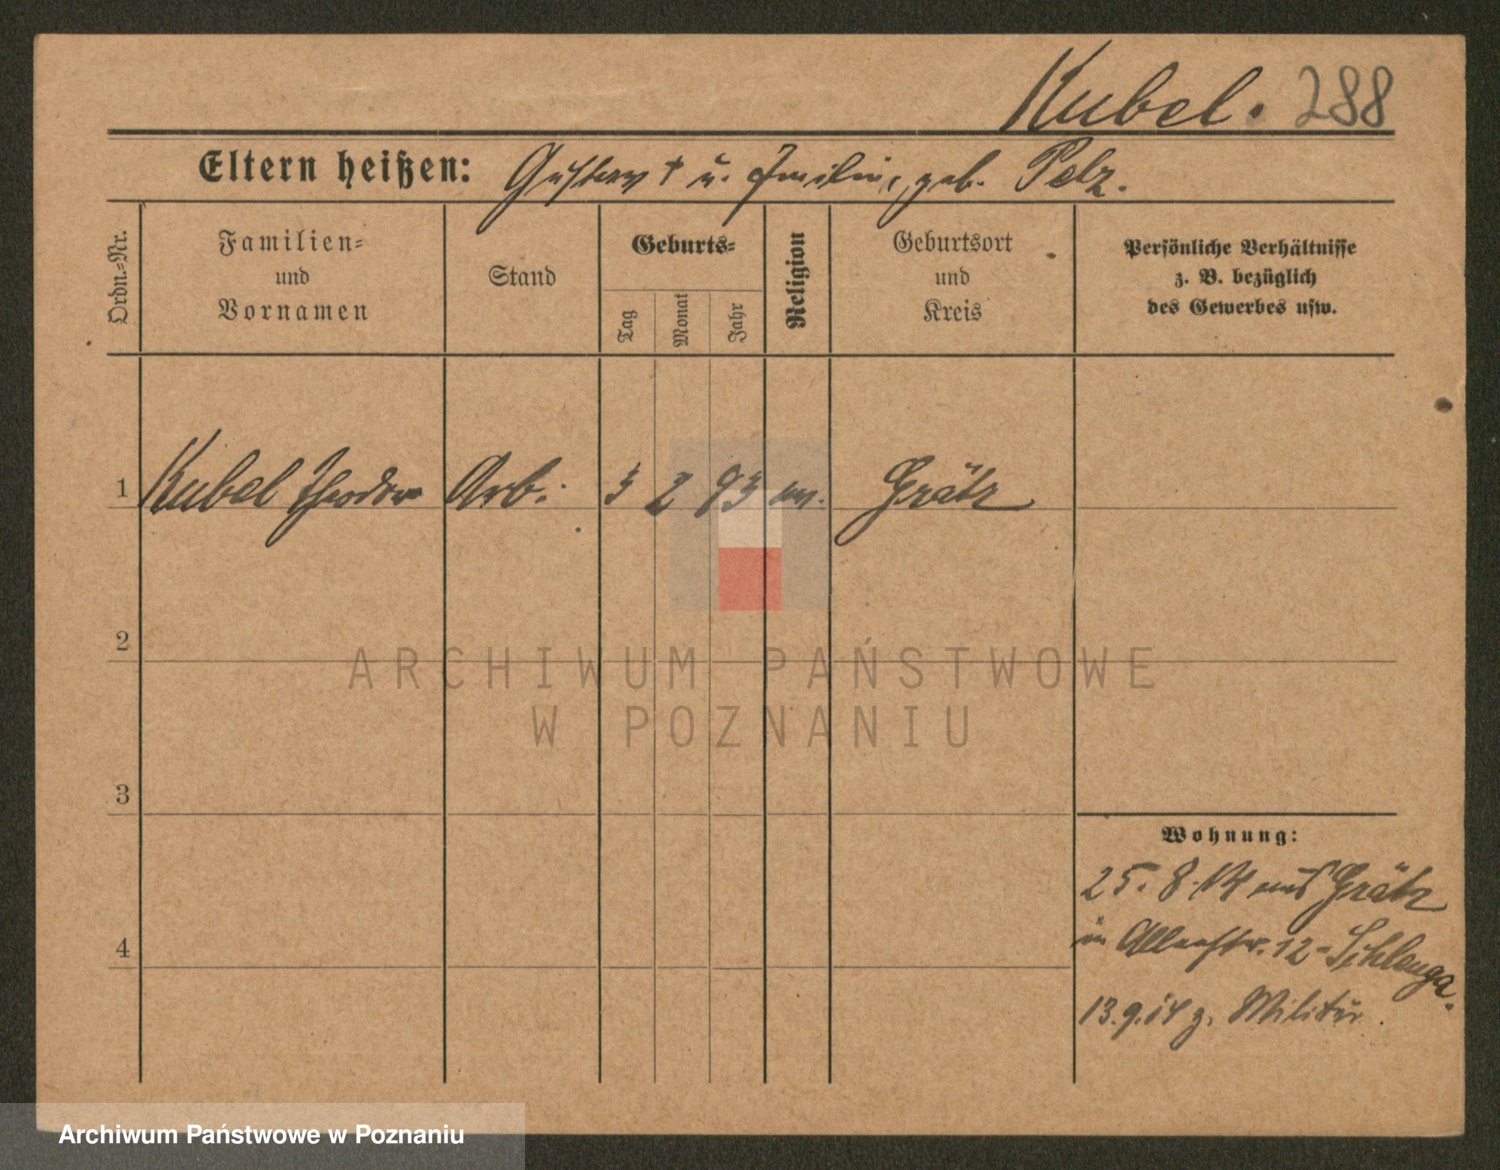 Kubel. 288
Eltern heißen: Gustav † u. Emilie, geb. Pelz.
Ordn.=Nr.
Familien=
und
Vornamen
Stand
Geburts=
Tag
Monat
Jahr
Religion
Geburtsort
und
Kreis
Persönliche Verhältnisse
z. B. bezüglich
des Gewerbes usw.
1 Kubel Theodor Arb. 3 2 93 ev. Grätz
2
3
4
ARCHIWUM PAŃSTWOWE
W POZNANIU
Wohnung:
25. 8. 14 aus Grätz
in 12 - Schlenga.
13.9.14 z. Militär.
Archiwum Państwowe w Poznaniu